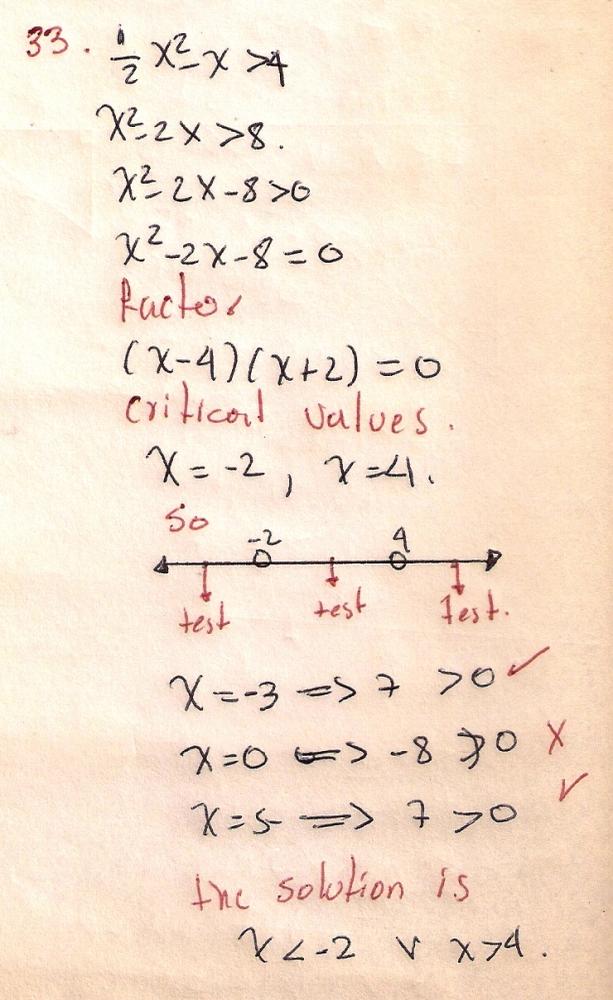 33. ½ x² - x > 4
x² - 2x > 8.
x² - 2x - 8 > 0
x² - 2x - 8 = 0
factor
(x-4)(x+2) = 0
critical values.
x = -2 , x = 4.
so
-2 4
test test test.
x = -3 => 7 > 0 ✓
x = 0 => -8 ≯ 0 x
x = 5 => 7 > 0 ✓
the solution is
x < -2 ∨ x > 4.